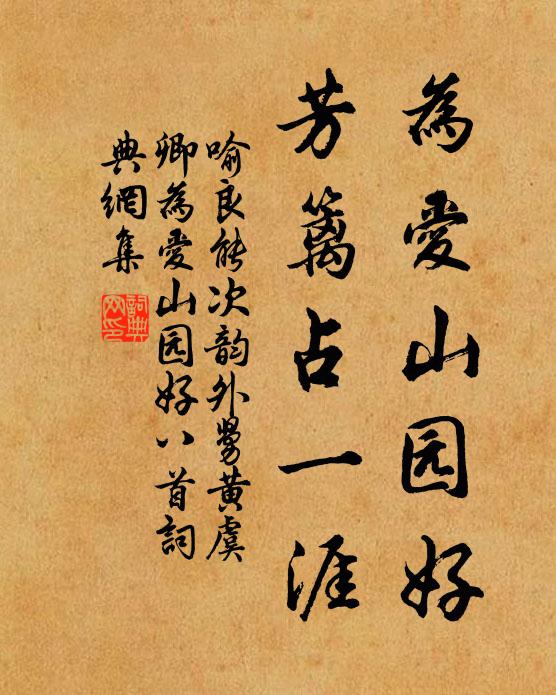 為愛山园好
芳篱占一涯
喻良能次韵外舅黄虞
卿為愛山园好八首詞
典網集
詞典网印